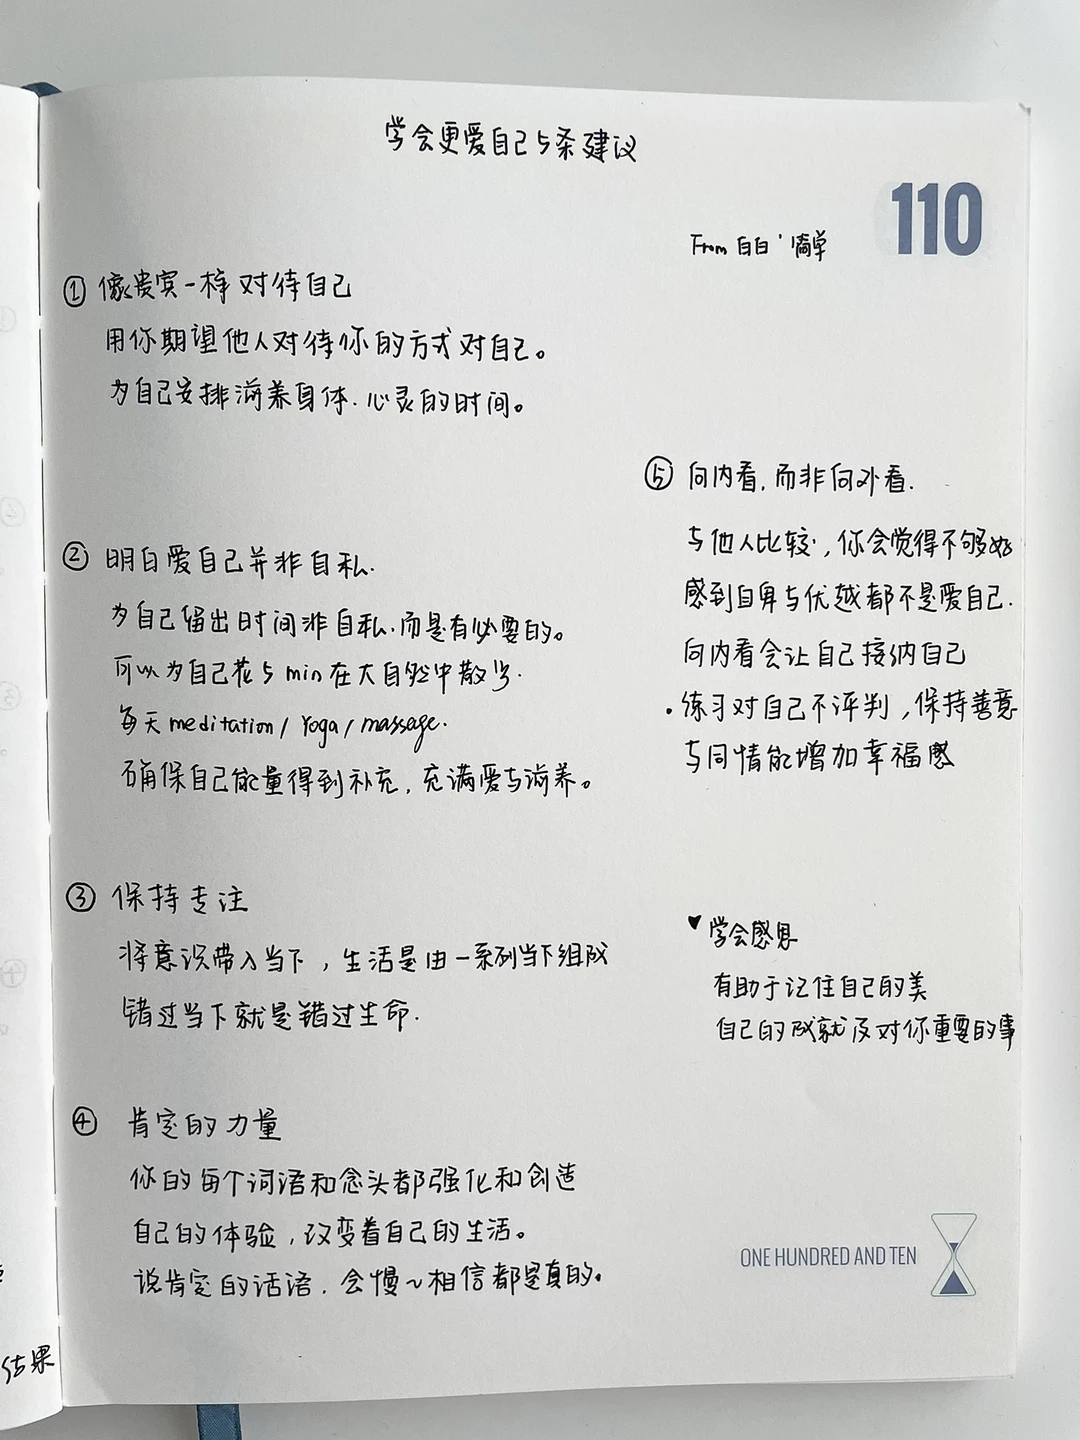 学会更爱自己5条建议
110
From 白白'简单
①像贵宾一样对待自己
用你期望他人对待你的方式对自己。
为自己安排滋养身体.心灵的时间。
②明白爱自己并非自私.
为自己留出时间非自私.而是有必要的。
可以为自己花5min在大自然中散步.
每天meditation/Yoga/massage.
确保自己能量得到补充,充满爱与滋养。
③保持专注
将意识带入当下,生活是由一系列当下组成
错过当下就是错过生命.
④肯定的力量
你的每个词语和念头都强化和创造
自己的体验,改变着自己的生活。
说肯定的话语.会慢~相信都是真的。
⑤向内看.而非向外看.
与他人比较,你会觉得不够好
感到自卑与优越都不是爱自己.
向内看会让自己接纳自己
·练习对自己不评判,保持善意
与同情能增加幸福感
♥学会感恩
有助于记住自己的美
自己的成就及对你重要的事
ONE HUNDRED AND TEN
结果